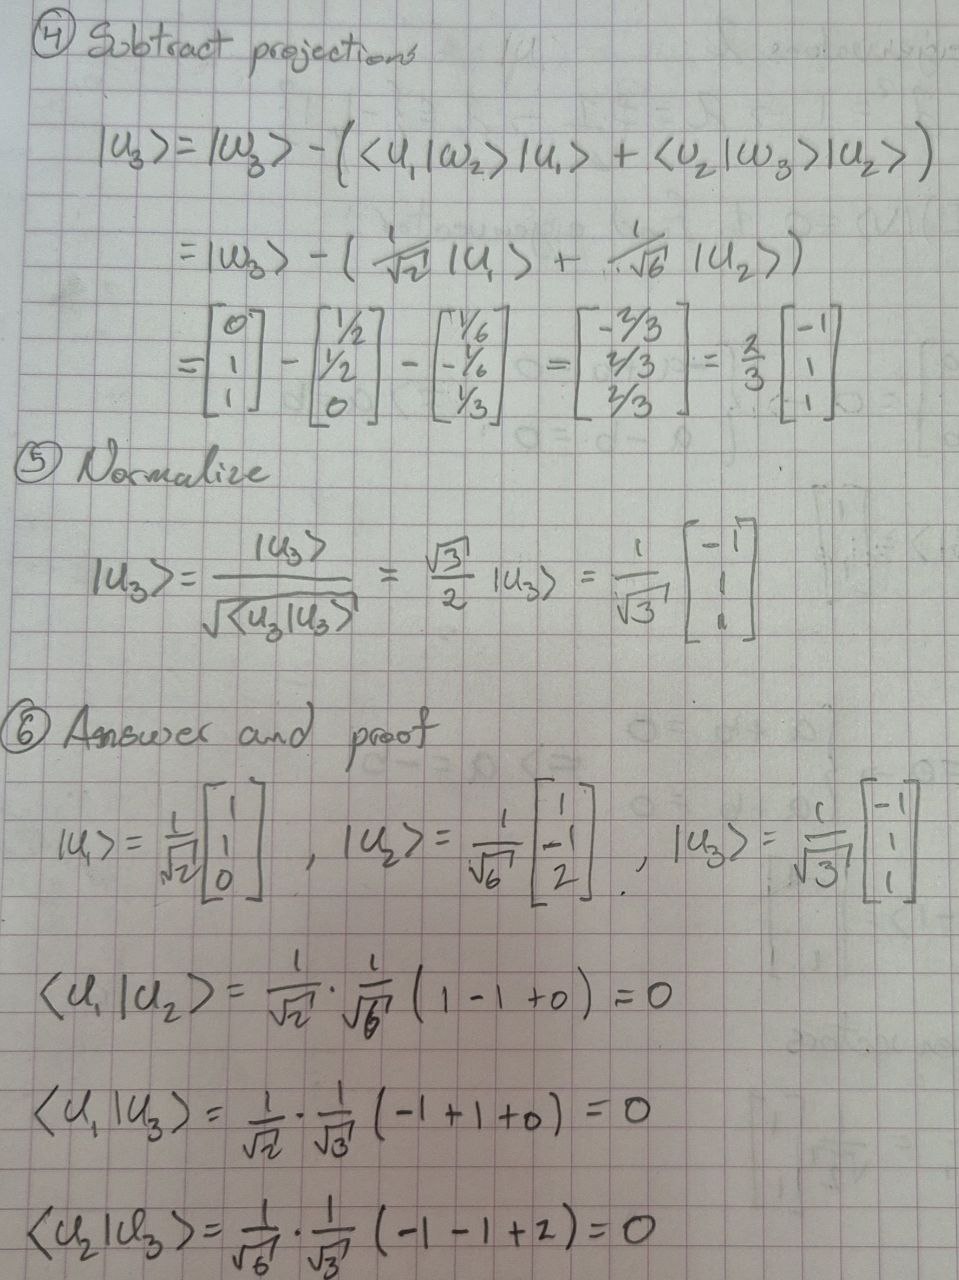 ④ Subtract projections
|u₃> = |w₃> - (<u₁|w₂>|u₁> + <u₂|w₃>|u₂>)
= |w₃> - (1/√2 |u₁> + 1/√6 |u₂>)
= [0 1 1] - [1/2 1/2 0] - [1/6 -1/6 1/3] = [-2/3 2/3 2/3] = 2/3 [-1 1 1]
⑤ Normalize
|u₃> = |u₃>/√<u₃|u₃> = √3/2 |u₃> = 1/√3 [-1 1 1]
⑥ Answer and proof
|u₁> = 1/√2 [1 1 0], |u₂> = 1/√6 [1 -1 2], |u₃> = 1/√3 [-1 1 1]
<u₁|u₂> = 1/√2 · 1/√6 (1 - 1 + 0) = 0
<u₁|u₃> = 1/√2 · 1/√3 (-1 + 1 + 0) = 0
<u₂|u₃> = 1/√6 · 1/√3 (-1 - 1 + 2) = 0